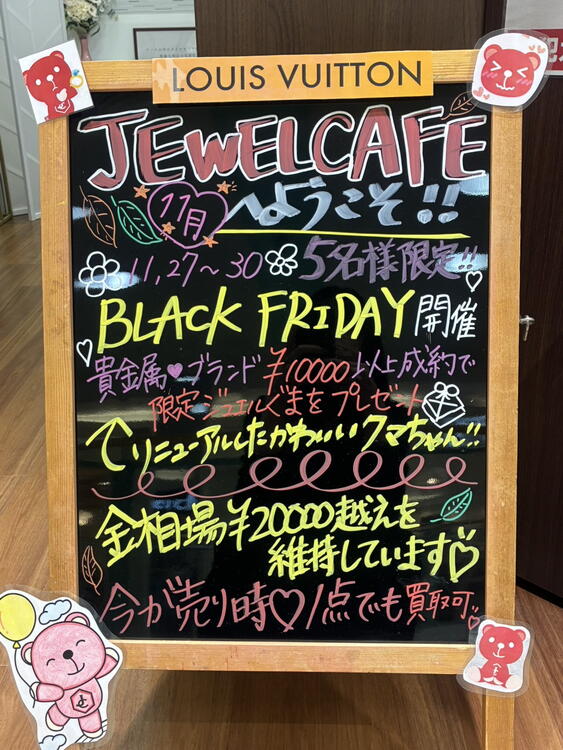 LOUIS VUITTON
JEWELCAFE
11月 へようこそ!!
11,27〜30 5名様限定!!
BLACK FRIDAY 開催
貴金属♥ブランド ¥10000 以上成約で
限定ジュエルぐまをプレゼント
リニューアルしたかわいいクマちゃん!!
金相場¥20000越えを
維持しています♡
今が売り時♡1点でも買取可